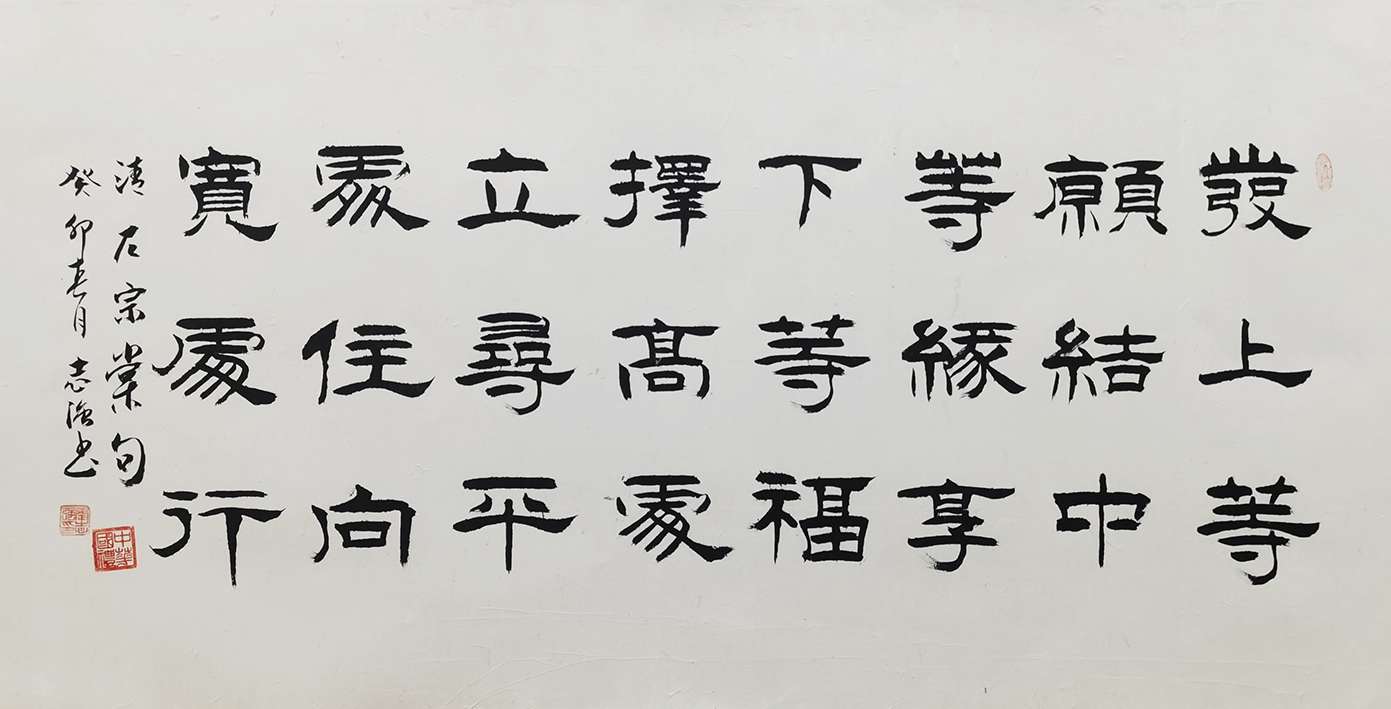 發上等
願結中
等緣享
下等福
擇高處
立尋平
處住向
寬處行
清左宗棠句
癸卯春月志书
中華國禮